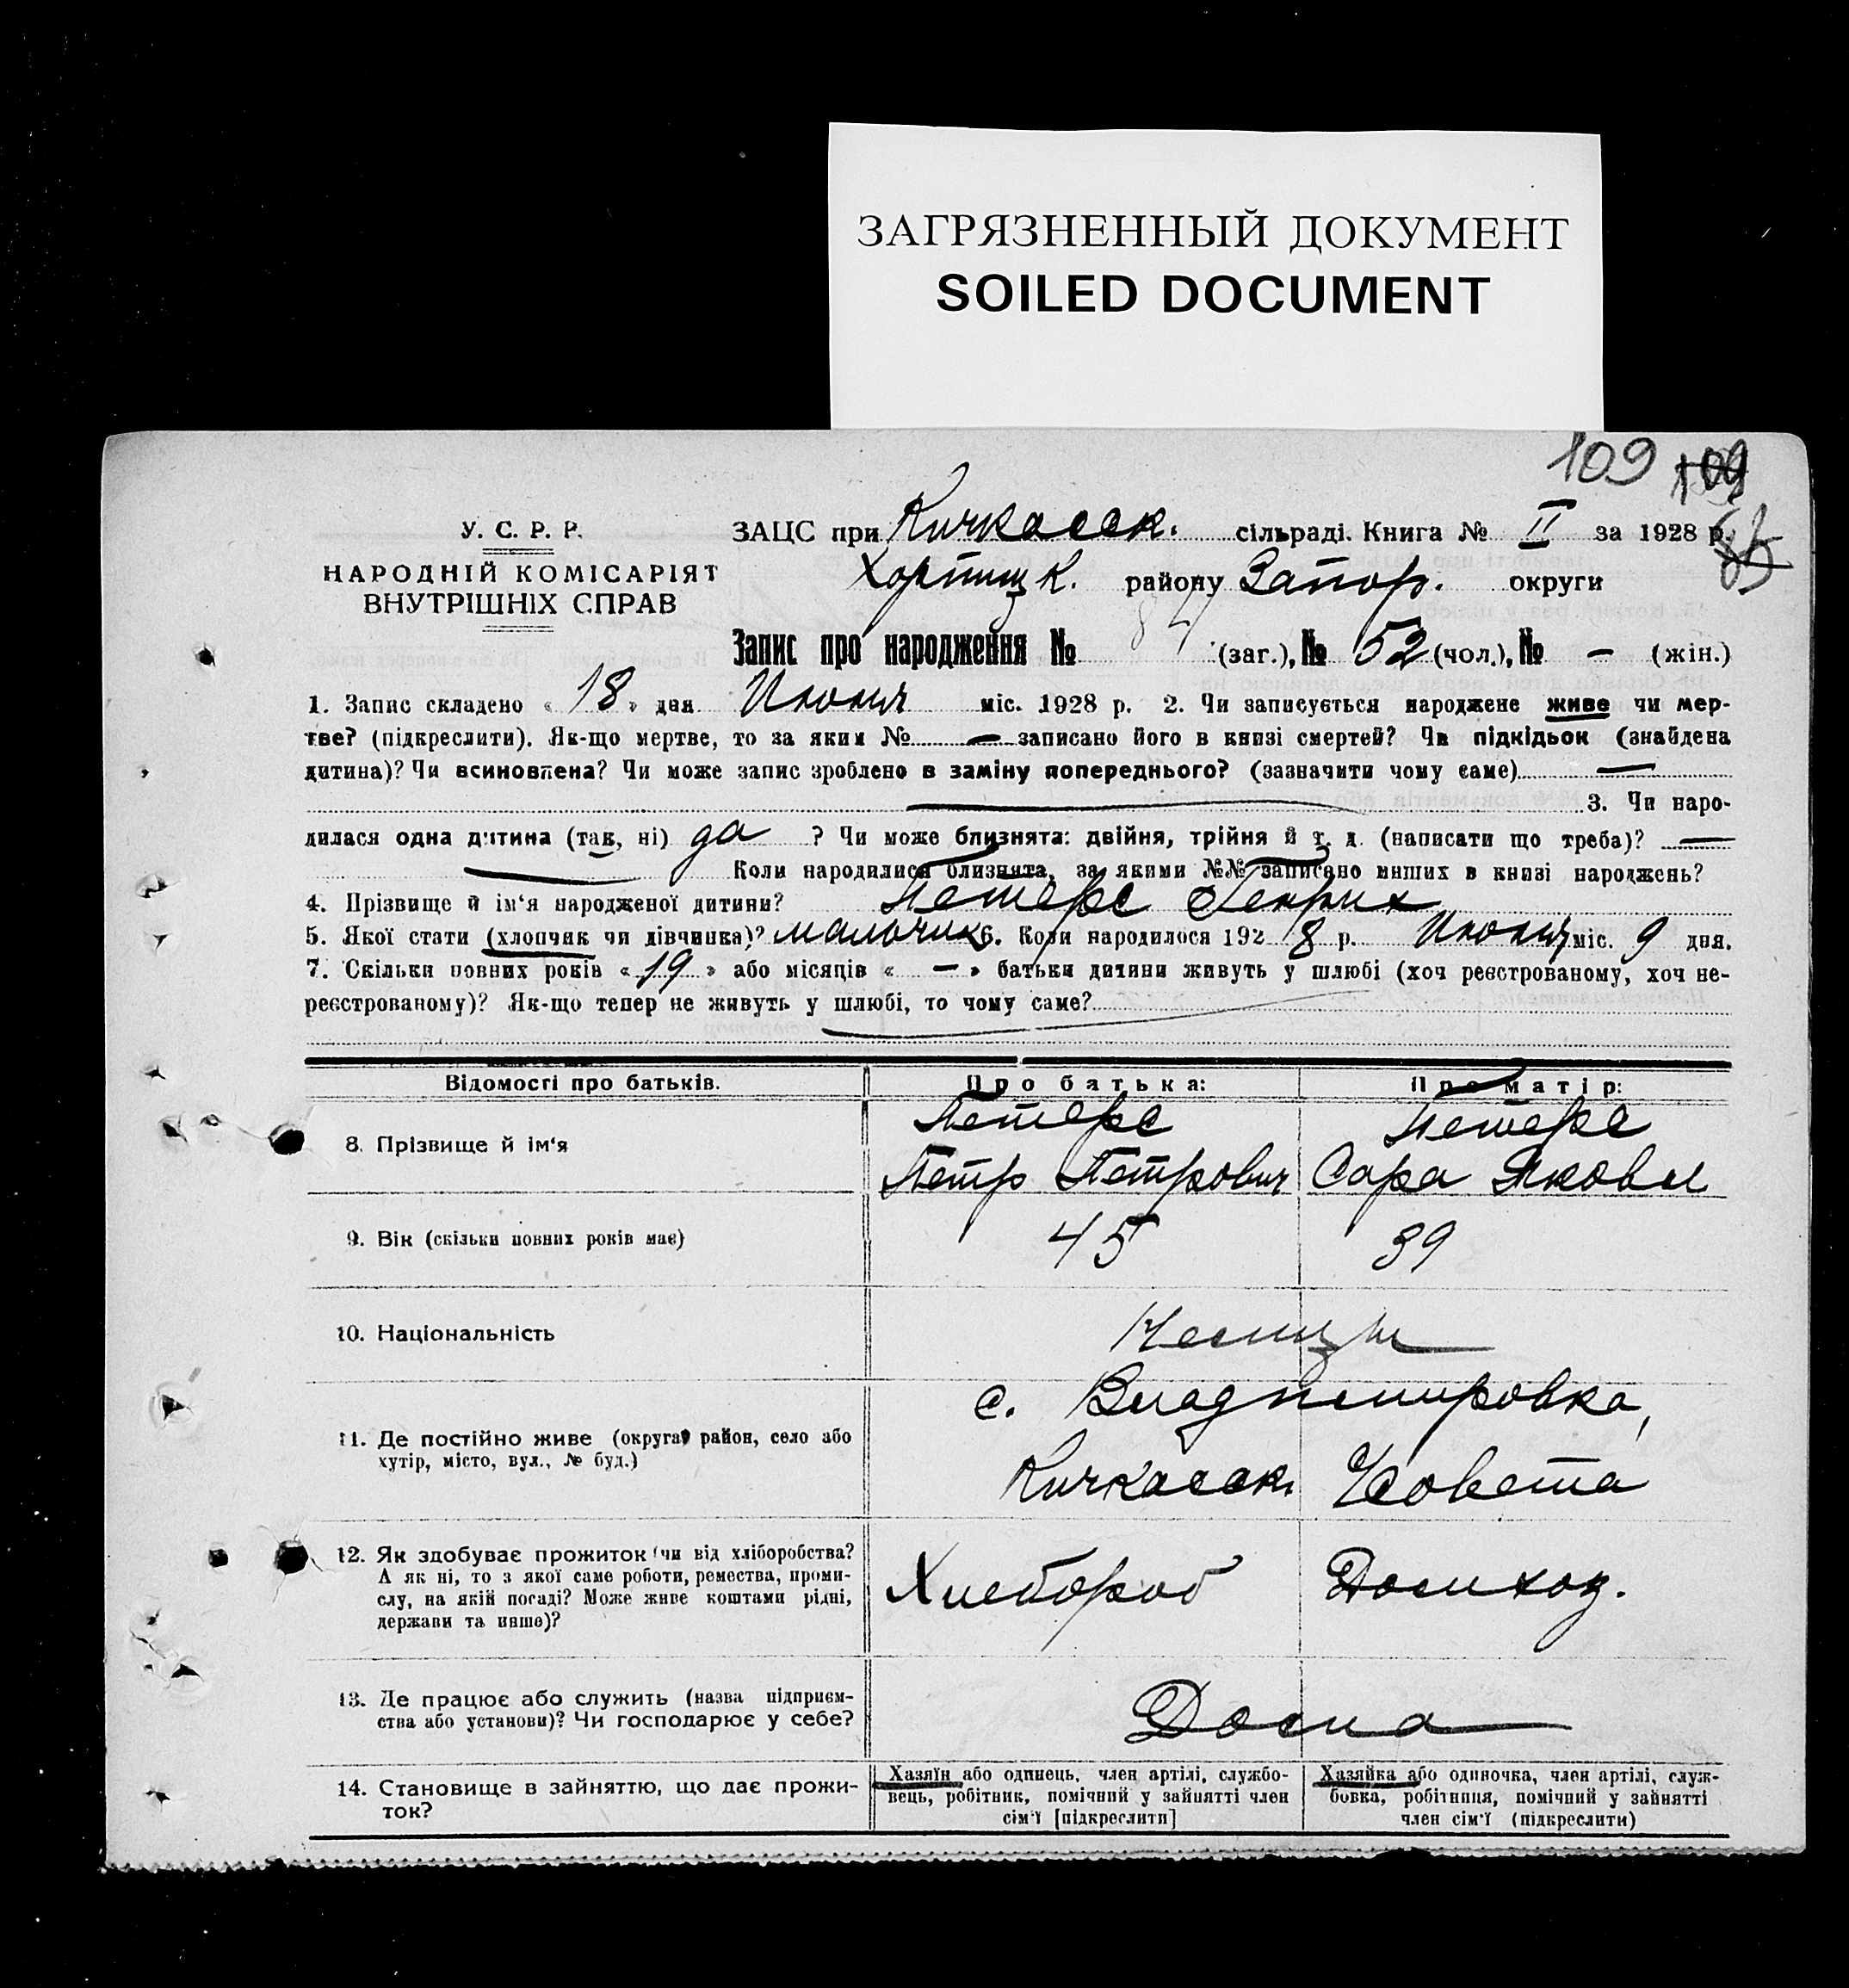 ЗАГРЯЗНЕННЫЙ ДОКУМЕНТ
SOILED DOCUMENT
109 109
У. С. Р. Р.
НАРОДНІЙ КОМІСАРІЯТ
ВНУТРІШНІХ СПРАВ
ЗАЦС при Кичкасск. сільраді. Книга № II за 1928 р.
Хортицк. району Запор. округи
Запис про народження № 84 (заг.), № 52 (чол.), № — (жін.)
1. Запис складено « 18 » дня Июня міс. 1928 р. 2. Чи записується народжене живе чи мер-
тве? (підкреслити). Як-що мертве, то за яким № — записано його в книзі смертей? Чи підкідьок (знайдена
дитина)? Чи всиновлена? Чи може запис зроблено в заміну попереднього? (зазначити чому саме) —
3. Чи наро-
дилася одна дитина (так, ні) да ? Чи може близнята: двійня, трійня й т. д. (написати що треба)? —
Коли народилися близнята, за якими №№ записано инших в книзі народжень?
4. Прізвище й ім‘я народженої дитини? Петерс Генрих
5. Якої стати (хлопчик чи дівчинка)? мальчик 6. Коли народилося 192 8 р. Июня міс. 9 дня.
7. Скільки повних років « 19 » або місяців « — » батьки дитини живуть у шлюбі (хоч реєстрованому, хоч не-
реєстрованому)? Як-що тепер не живуть у шлюбі, то чому саме?
Відомості про батьків. Про батька: Про матір:
8. Прізвище й ім‘я Петерс Петр Петрович Петерс Сара Яковл
9. Вік (скільки повних років має) 45 39
10. Національність Немцы
11. Де постійно живе (округа, район, село або
хутір, місто, вул., № буд.)
с. Владимировка,
Кичкасск. Совета
12. Як здобуває прожиток (чи від хліборобства?
А як ні, то з якої саме роботи, ремества, проми-
слу, на якій посаді? Може живе коштами рідні,
держави та инше)?
Хлебороб Домхоз.
13. Де працює або служить (назва підприєм-
ства або установи)? Чи господарює у себе?
Дома
14. Становище в зайняттю, що дає прожи-
ток?
Хазяїн або одинець, член артілі, службо-
вець, робітник, помічний у зайнятті член
сім‘ї [підкреслити]
Хазяйка або одиночка, член артілі, служ-
бовка, робітниця, помічний у зайнятті
член сім‘ї (підкреслити)